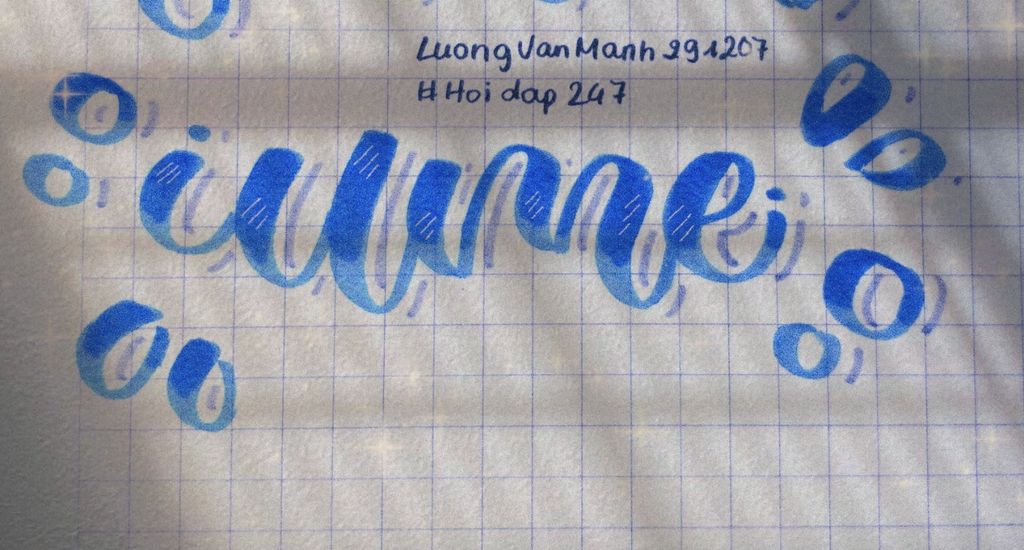 Luong Van Manh 291207
# Hoi dap 247
iumei